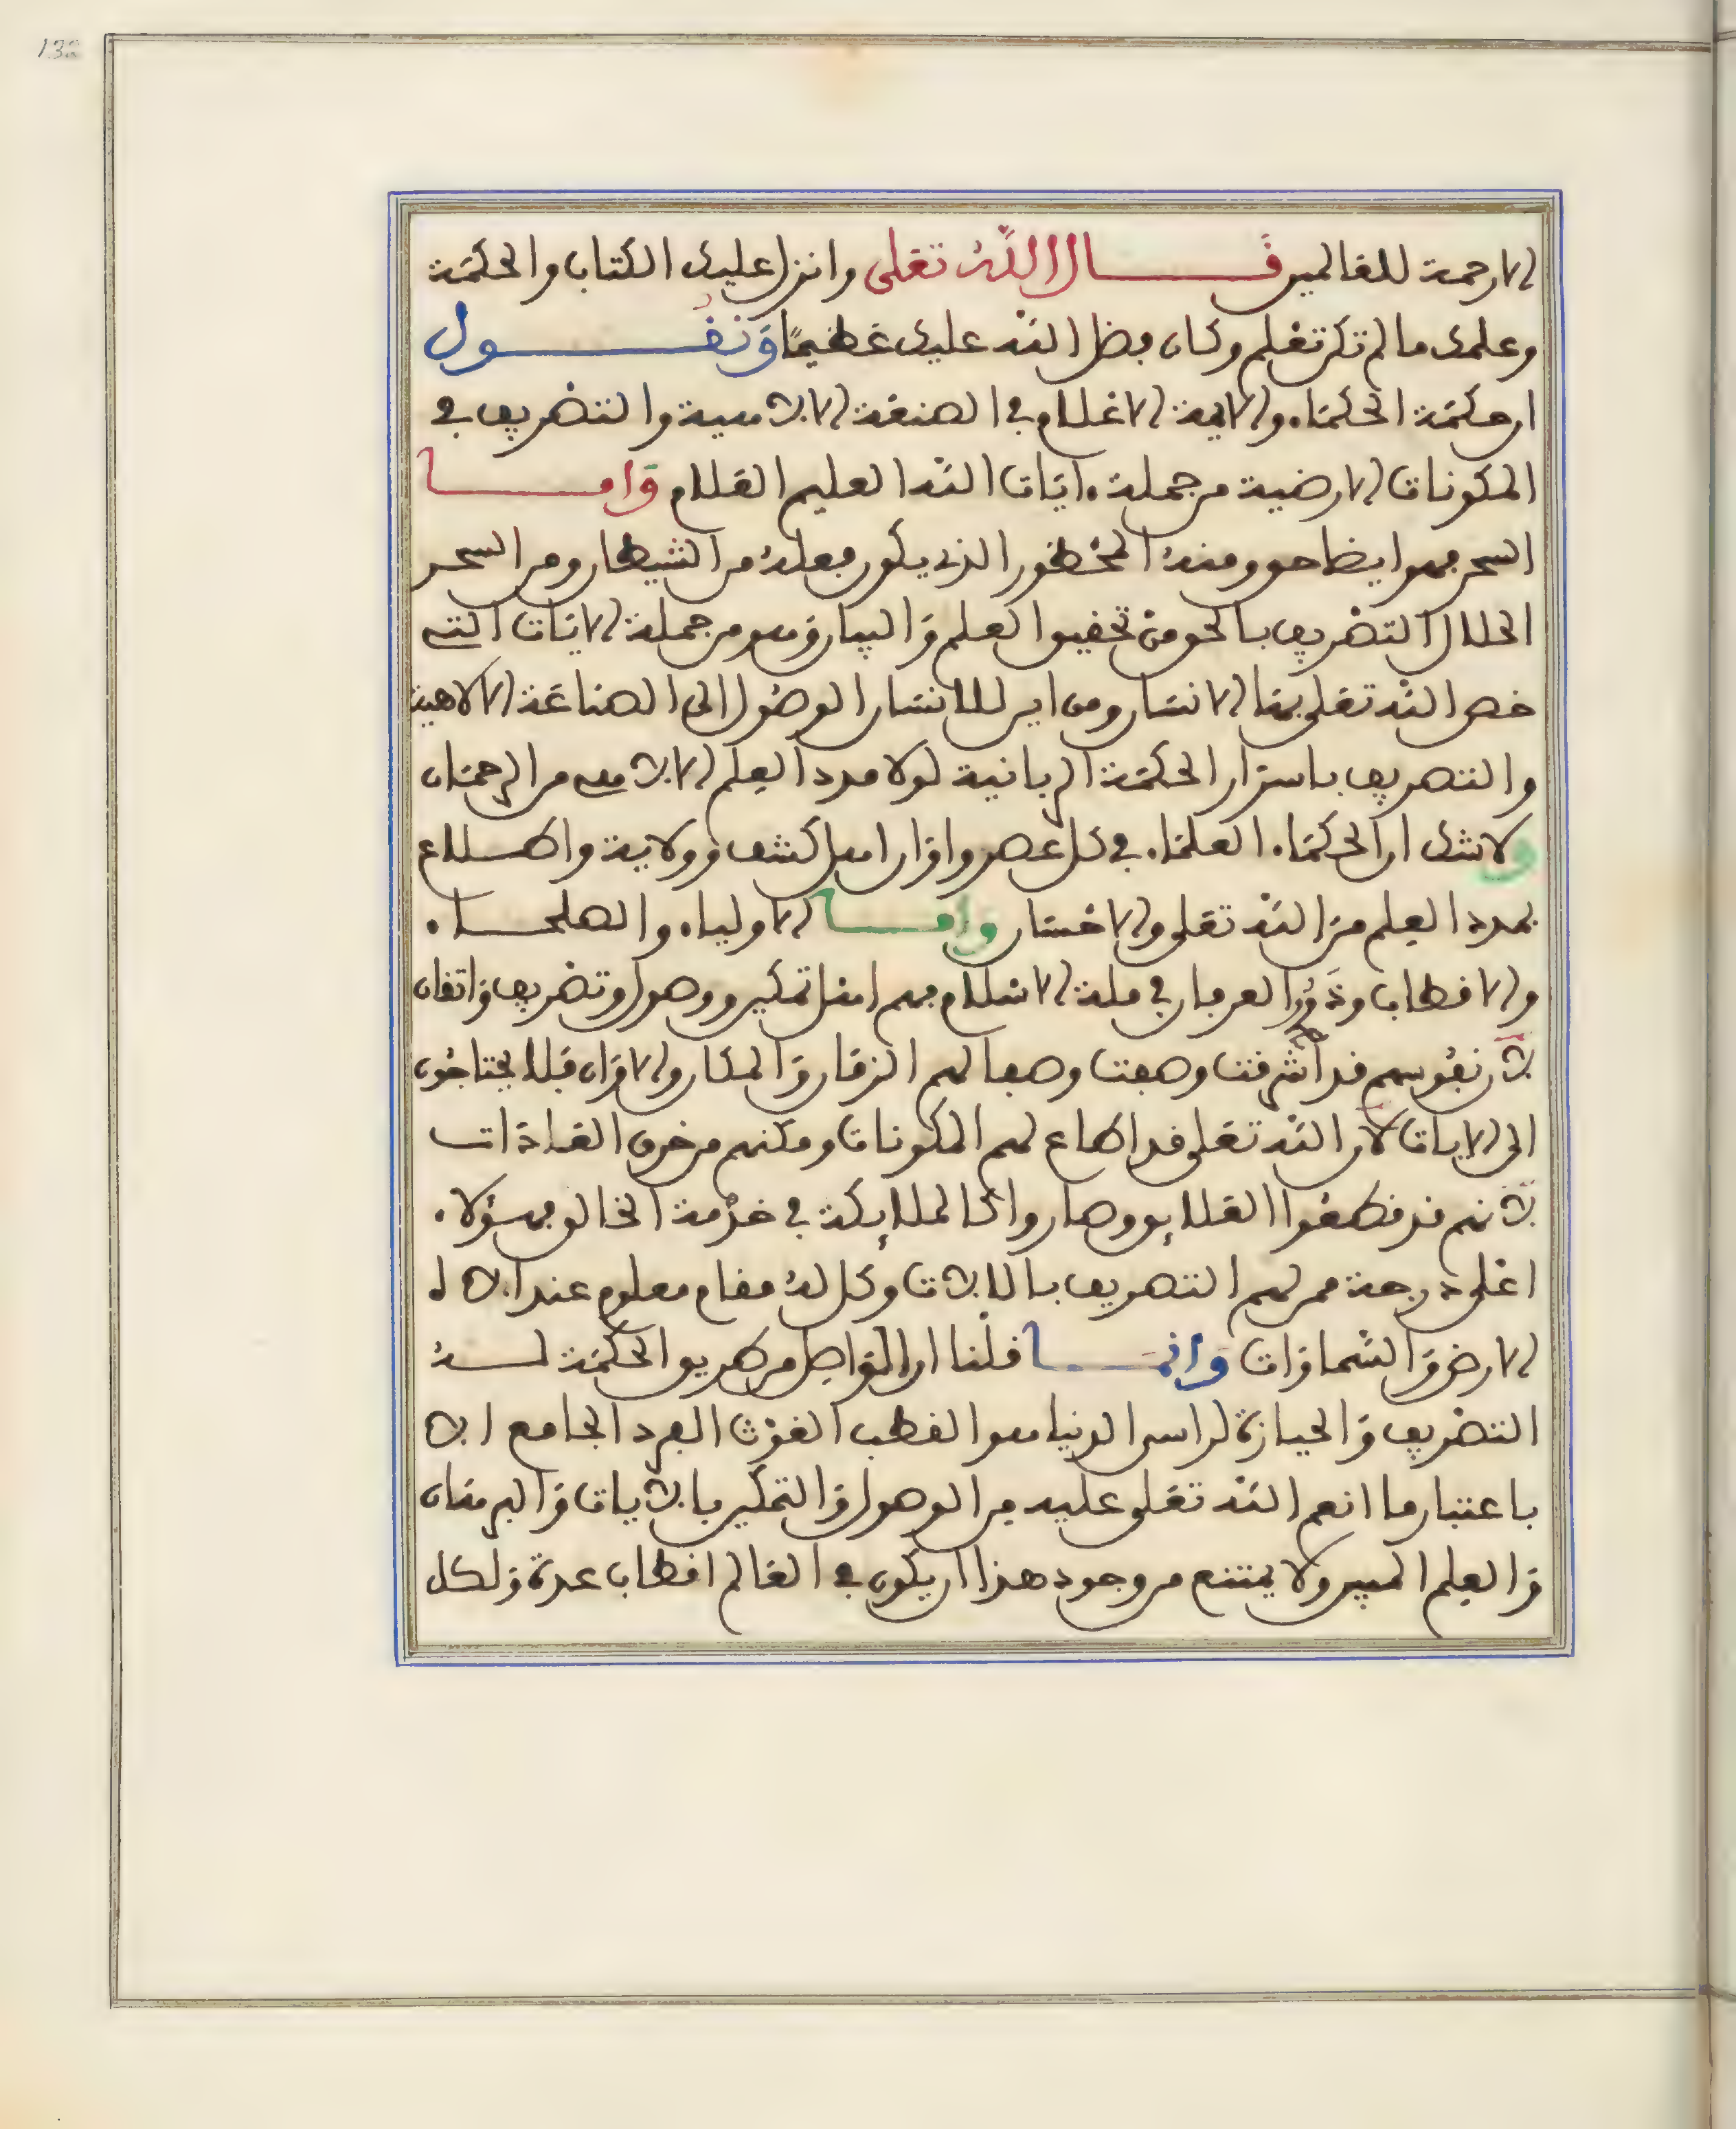 132
الا رحمة للعالمين قال الله تعلى وانزل عليك الكتاب والحكمة
وعلمك ما لم تكن تعلم وكان فضل الله عليك عظيما ونقول
ان حكمة الحكماء والايمة الاعلام في الصنعة الالاهية والتصريف في
المكونات الارضية من جملة ءايات الله العليم العلام واما
السحر فهو ايضا حق ومنه المحظور الذي يكون فعله من الشيطان ومن السحر
الحلال التصريف بالحق من تحقيق العلم والبيان وهو من جملة الايات التي
خص الله تعلى بها الانسان ومن اين للانسان الوصول الى الصناعة الالاهية
والتصريف باسرار الحكمة الربانية لولا مدد العلم الالاهي من الرحمان
ولا شك ان الحكماء العلماء في كل عصر واوان اهل كشف وولاية واطلاع
بمدد العلم من الله تعلى والاحسان واما الاولياء والصلحاء
والاقطاب وذوو العرفان في ملة الاسلام فهم اهل تمكين ووصول وتصريف واتفان
لان نفوسهم قد اشرقت وصفت وصفا لهم الزمان والمكان والاوان فلا يحتاجون
الى الايات لان الله تعلى قد اطاع لهم المكونات ومكنهم من خرق العادات
لانهم قد قطعوا العلايق وصاروا كالملايكة في خدمة الخالق فهؤلاء
اعلى درجة ممن لهم التصريف بالالات وكل له مقام معلوم عند الاه
الارض والسماوات وانما قلنا ان الواصل من طريق الحكمة له
التصريف والحيازة لراس الدنيا هو القطب الغوث الفرد الجامع الا
باعتبار ما انعم الله تعلى عليه من الوصول والتمكين بالايات والبرهان
والعلم المبين ولا يمتنع من وجود هذا ان يكون في العالم اقطاب عدة ولكل